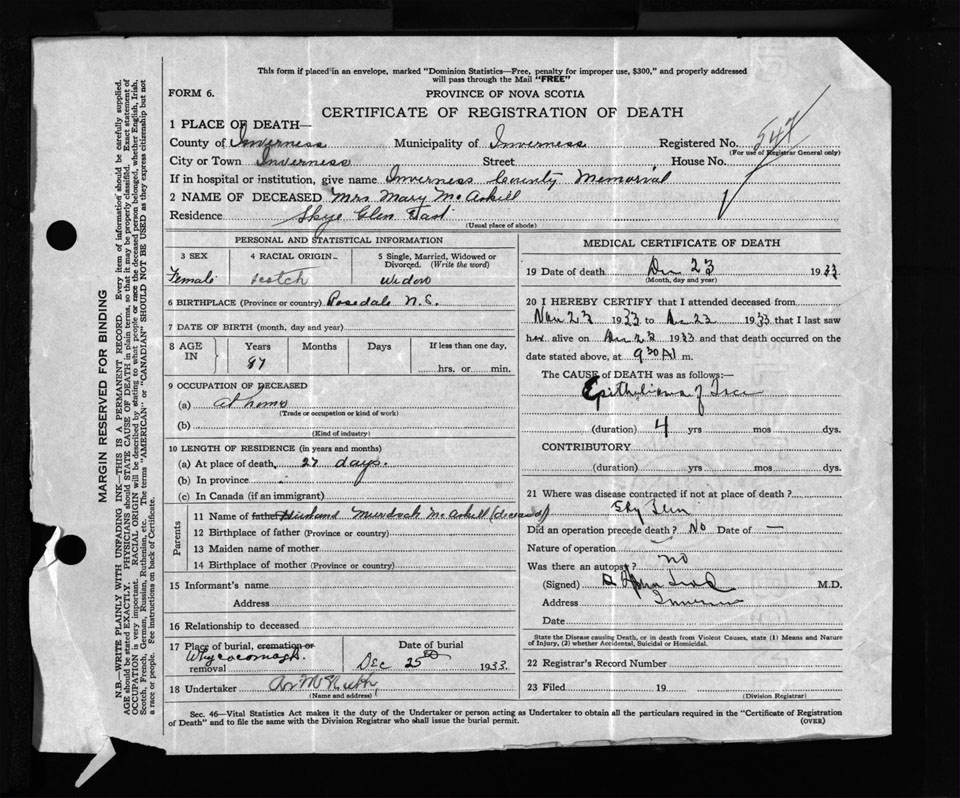 This form if placed in an envelope, marked "Dominion Statistics—Free, penalty for improper use, $300," and properly addressed
will pass through the Mail "FREE"
FORM 6.
PROVINCE OF NOVA SCOTIA
CERTIFICATE OF REGISTRATION OF DEATH
1 PLACE OF DEATH—
County of Inverness Municipality of Inverness Registered No. 547
(For use of Registrar General only)
City or Town Inverness Street House No.
If in hospital or institution, give name Inverness County Memorial
2 NAME OF DECEASED Mrs Mary McAskill
Residence Skye Glen East
(Usual place of abode)
PERSONAL AND STATISTICAL INFORMATION
3 SEX 4 RACIAL ORIGIN 5 Single, Married, Widowed or
Divorced. (Write the word)
Female Scotch Widow
6 BIRTHPLACE (Province or country) Rosedale N.S.
7 DATE OF BIRTH (month, day and year)
8 AGE IN Years Months Days If less than one day,
87 hrs. or min.
9 OCCUPATION OF DECEASED
(a) At home
(Trade or occupation or kind of work)
(b)
(Kind of industry)
10 LENGTH OF RESIDENCE (in years and months)
(a) At place of death, 27 days.
(b) In province
(c) In Canada (if an immigrant)
Parents
11 Name of father Husband Murdoch McAskill (deceased)
12 Birthplace of father (Province or country)
13 Maiden name of mother
14 Birthplace of mother (Province or country)
15 Informant's name
Address
16 Relationship to deceased
17 Place of burial, cremation or
removal Whycocomagh Date of burial
Dec 25th 1933.
18 Undertaker
(Name and address)
MEDICAL CERTIFICATE OF DEATH
19 Date of death Dec 23 1933
(Month, day and year)
20 I HEREBY CERTIFY that I attended deceased from
Nov 23 1933 to Dec 23 1933 that I last saw
her alive on Dec 23 1933 and that death occurred on the
date stated above, at 9 30 A m.
The CAUSE of DEATH was as follows:—
Epithelioma of Face
(duration) 4 yrs mos dys.
CONTRIBUTORY
(duration) yrs mos dys.
21 Where was disease contracted if not at place of death?
Sky Glen
Did an operation precede death? No Date of —
Nature of operation
Was there an autopsy? no
(Signed) M.D.
Address Inverness
Date
State the Disease causing Death, or in death from Violent Causes, state (1) Means and Nature
of Injury, (2) whether Accidental, Suicidal or Homicidal.
22 Registrar's Record Number
23 Filed 19
(Division Registrar)
Sec. 46—Vital Statistics Act makes it the duty of the Undertaker or person acting as Undertaker to obtain all the particulars required in the "Certificate of Registration
of Death" and to file the same with the Division Registrar who shall issue the burial permit.
(OVER)
MARGIN RESERVED FOR BINDING
N.B.—WRITE PLAINLY WITH UNFADING INK—THIS IS A PERMANENT RECORD. Every item of information should be carefully supplied.
AGE should be stated EXACTLY. PHYSICIANS should STATE CAUSE OF DEATH in plain terms, so that it may be properly classified. Exact statement of
OCCUPATION is very important. RACIAL ORIGIN will be described by stating to what people or race the deceased person belonged, whether English, Irish,
Scotch, French, German, Russian, Ruthenian, etc. The terms "AMERICAN" or "CANADIAN" SHOULD NOT BE USED as they express citizenship but not
a race or people. See instructions on back of Certificate.